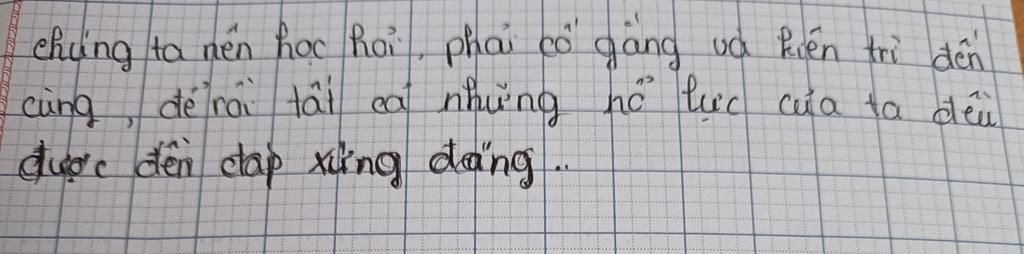 chúng ta nên học hỏi, phải cố gắng và kiên trì đến
cùng, để rồi tất cả những nỗ lực của ta đều
được đền đáp xứng đáng..